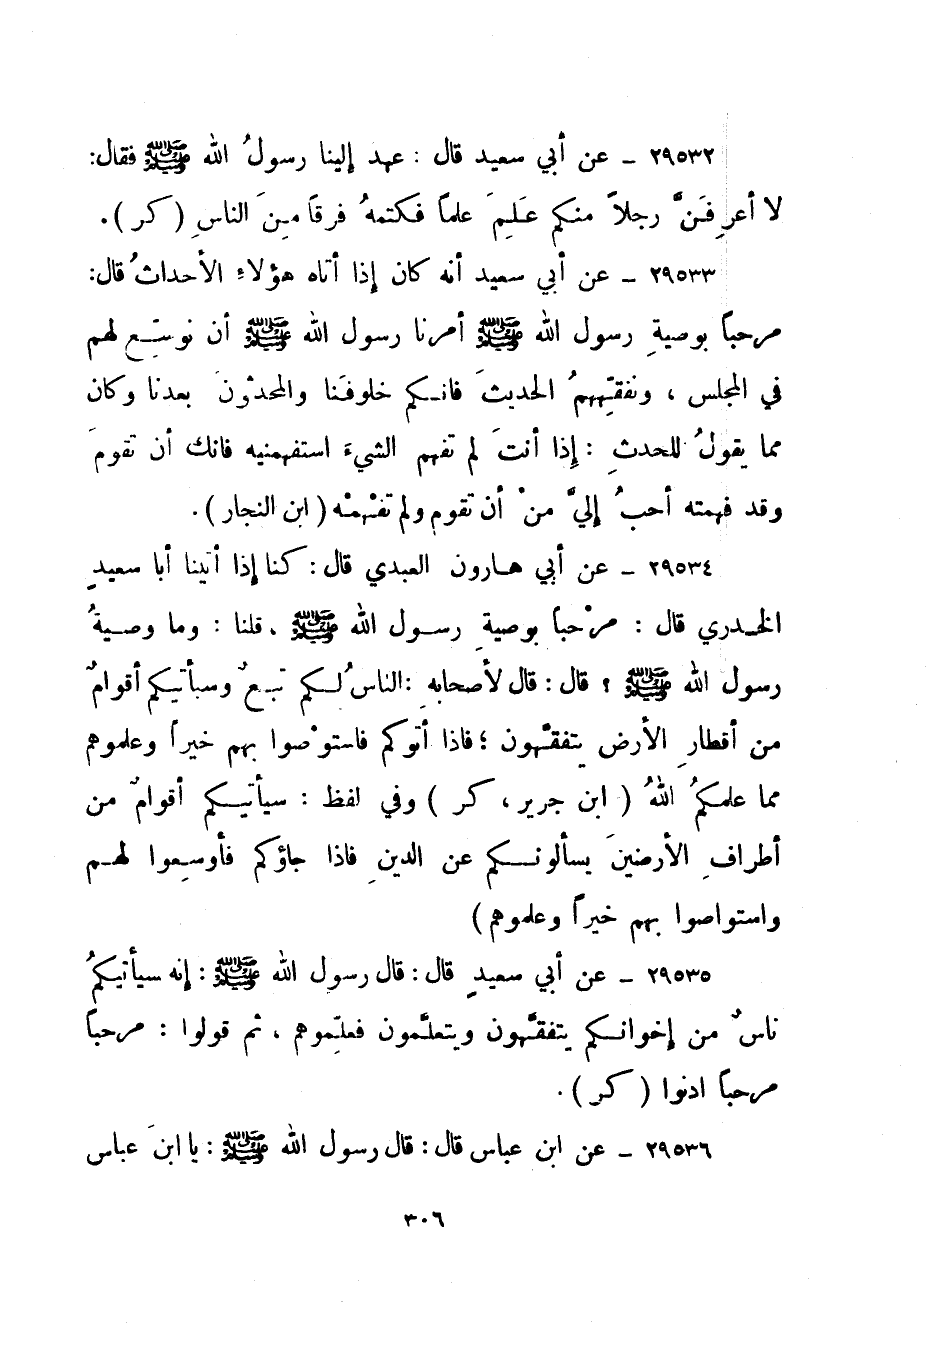 ٢٩٥٣٢ ـ عن أبي سعيد قال : عهد إلينا رسولُ الله ﷺ فقال:
لا أعرِفَنَّ رجلاً منكم عَلِمَ علماً فكتمهُ فرقاً مِنَ الناسِ (كر).
٢٩٥٣٣ ـ عن أبي سعيد أنه كان إذا أتاه هؤلاءِ الأحداثُ قال:
مرحباً بوصيةِ رسول الله ﷺ أمرنا رسول الله ﷺ أن نوسِّع لهم
في المجلس ، ونفقِّههمُ الحديثَ فانكم خلوفَنا والمحدثونَ بعدنا وكان
مما يقولُ للحدثِ : إذا أنتَ لم تفهم الشيءَ استفهمنيه فانك أن تقومَ
وقد فهمته أحبُ إليَّ منْ أن تقوم ولم تفْهمْه ( ابن النجار ) .
٢٩٥٣٤ ـ عن أبي هارون العبدي قال : كنا إذا أتينا أبا سعيدٍ
الخدري قال : مرْحباً بوصيةِ رسول الله ﷺ ، قلنا : وما وصيةُ
رسول الله ﷺ ؟ قال : قال لأصحابهِ : الناسُ لكم تبعٌ وسيأتيكم أقوامٌ
من أقطارِ الأرض يتفقَّهون ؛ فاذا أتوكم فاستوْصوا بهم خيراً وعلموهم
مما علمكمُ اللهُ ( ابن جرير ، كر ) وفي لفظ : سيأتيكم أقوامٌ من
أطرافِ الأرضينَ يسألونكم عن الدينِ فاذا جاؤكم فأوسِعوا لهم
واستواصوا بهم خيراً وعلموهم )
٢٩٥٣٥ ـ عن أبي سعيدٍ قال : قال رسول الله ﷺ : إنه سيأتيكمُ
ناسٌ من إخوانكم يتفقَّهون ويتعلَّمون فعلِّموهم ، ثم قولوا : مرحباً
مرحباً ادنوا ( كر ) .
٢٩٥٣٦ ـ عن ابن عباس قال : قال رسول الله ﷺ : يا ابنَ عباس
٣٠٦